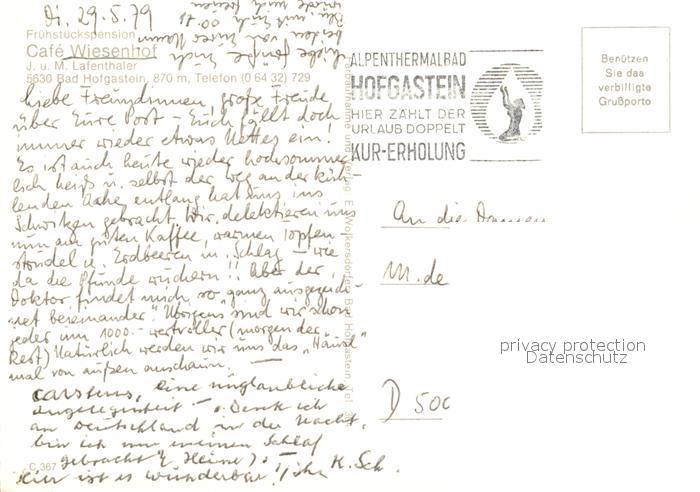 Di, 29.5.79
Frühstückspension
Café Wiesenhof
J. u. M. Lafenthaler
5630 Bad Hofgastein, 870 m, Telefon (0 64 32) 729
Liebe Freundinnen, große Freude
über Eure Post – Euch fällt doch
immer wieder etwas Nettes ein!
Es ist auch heute wieder hochsommer
lich heiß u. selbst der Weg an der küh-
lenden Ache entlang hat uns ins
Schwitzen gebracht. Wir delektieren uns
nun am guten Kaffee, warmen Topfen-
strudel u. Erdbeeren m. Schlag – wie
da die Pfunde wuchern!! Aber der
Doktor findet mich so "ganz ausgezeich-
net beieinander". Übrigens sind wir schon
jeder um 1000.- wertvoller (morgen der
Rest) Natürlich werden wir uns das "Häusl"
mal von außen anschaun. —
Carstens, eine unglaubliche
Angelegenheit – "Denk ich
an Deutschland in der Nacht,
bin ich um meinen Schlaf
gebracht" (Heine).
Hier ist es wunderbar! Ihr K. Sch.
C 367
ALPENTHERMALBAD
HOFGASTEIN
HIER ZÄHLT DER
URLAUB DOPPELT
KUR-ERHOLUNG
Benützen
Sie das
verbilligte
Grußporto
An die Damen
M. de
D 500
privacy protection
Datenschutz